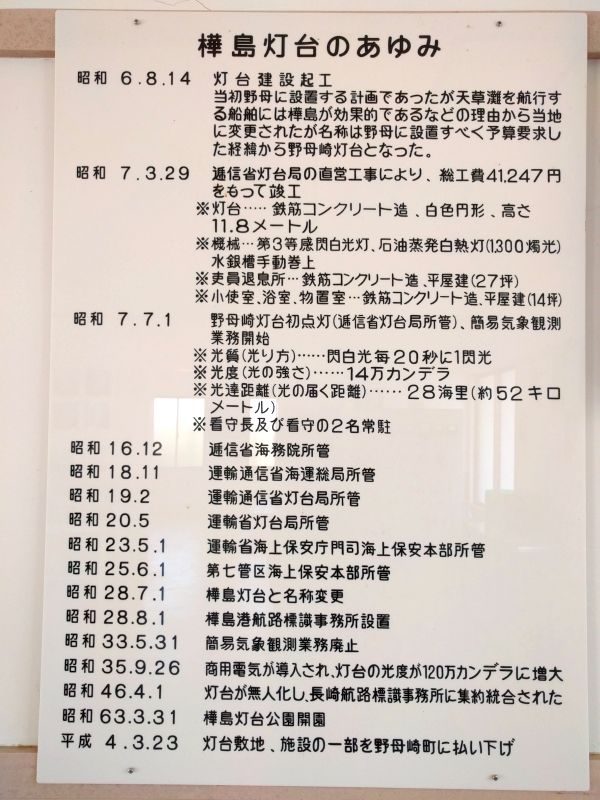 樺島灯台のあゆみ
昭和 6.8.14 灯台建設起工
当初野母に設置する計画であったが天草灘を航行す
る船舶には樺島が効果的であるなどの理由から当地
に変更されたが名称は野母に設置すべく予算要求し
た経緯から野母崎灯台となった。
昭和 7.3.29 逓信省灯台局の直営工事により、総工費41,247円
をもって竣工
※灯台‥‥‥鉄筋コンクリート造、白色円形、高さ
11.8メートル
※機械…第3等感閃白光灯、石油蒸発白熱灯(1,300燭光)
水銀槽手動巻上
※吏員退息所…鉄筋コンクリート造、平屋建(27坪)
※小使室、浴室、物置室…鉄筋コンクリート造、平屋建(14坪)
昭和 7.7.1 野母崎灯台初点灯(逓信省灯台局所管)、簡易気象観測
業務開始
※光質(光り方)……閃白光毎20秒に1閃光
※光度(光の強さ)……14万カンデラ
※光達距離(光の届く距離)……28海里(約52キロ
メートル)
※看守長及び看守の2名常駐
昭和 16.12 逓信省海務院所管
昭和 18.11 運輸通信省海運総局所管
昭和 19.2 運輸通信省灯台局所管
昭和 20.5 運輸省灯台局所管
昭和 23.5.1 運輸省海上保安庁門司海上保安本部所管
昭和 25.6.1 第七管区海上保安本部所管
昭和 28.7.1 樺島灯台と名称変更
昭和 28.8.1 樺島港航路標識事務所設置
昭和 33.5.31 簡易気象観測業務廃止
昭和 35.9.26 商用電気が導入され、灯台の光度が120万カンデラに増大
昭和 46.4.1 灯台が無人化し、長崎航路標識事務所に集約統合された
昭和 63.3.31 樺島灯台公園開園
平成 4.3.23 灯台敷地、施設の一部を野母崎町に払い下げ